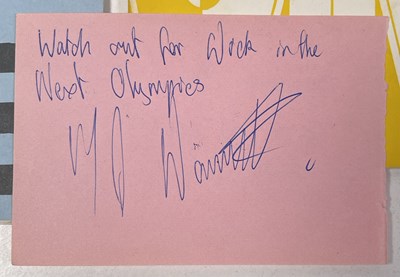 Watch out for Wick in the
Next Olympics
M J